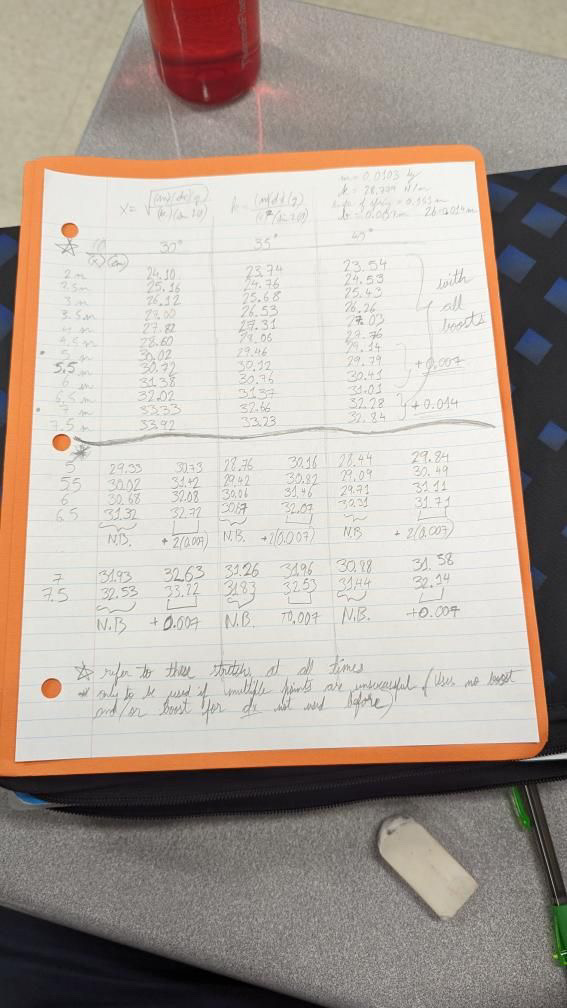 ThermoFlask
m = 0.0103 kg
x = √((m)(dx)(g) / (k)(sin 2θ)) k = (m)(dx)(g) / (x²)(sin 2θ)
k = 28.779 N/m
b = 0.007m 2b = 0.014m
☆ (x) (cm) 30° 35° 45°
2 m 24.10 23.74 23.54
2.5m 25.16 24.76 24.53
3 m 26.12 25.68 25.43
3.5 m 27.00 26.53 26.26
4 m 27.82 27.31 27.03
4.5 m 28.60 28.06 27.76
• 5 m 30.02 29.46 29.14
5.5 m 30.72 30.12 29.79
6 m 31.38 30.76 30.41
6.5 m 32.02 31.37 31.01
• 7 m 33.33 32.66 32.28
7.5 m 33.92 33.23 32.84
with
all
boosts
+0.007
+0.014
*
5 29.33 30.73 28.76 30.16 28.44 29.84
5.5 30.02 31.42 29.42 30.82 29.09 30.49
6 30.68 32.08 30.06 31.46 29.71 31.11
6.5 31.32 32.72 30.67 32.07 30.31 31.71
N.B. + 2(0.007) N.B. + 2(0.007) N.B. + 2(0.007)
7 31.93 32.63 31.26 31.96 30.88 31.58
7.5 32.53 33.22 31.83 32.53 31.44 32.14
N.B + 0.007 N.B. +0.007 N.B. +0.007
☆ refer to these stretches at all times
* only to be used if multiple points are unsuccessful (Uses no boost
and/or boost for dx not used before)